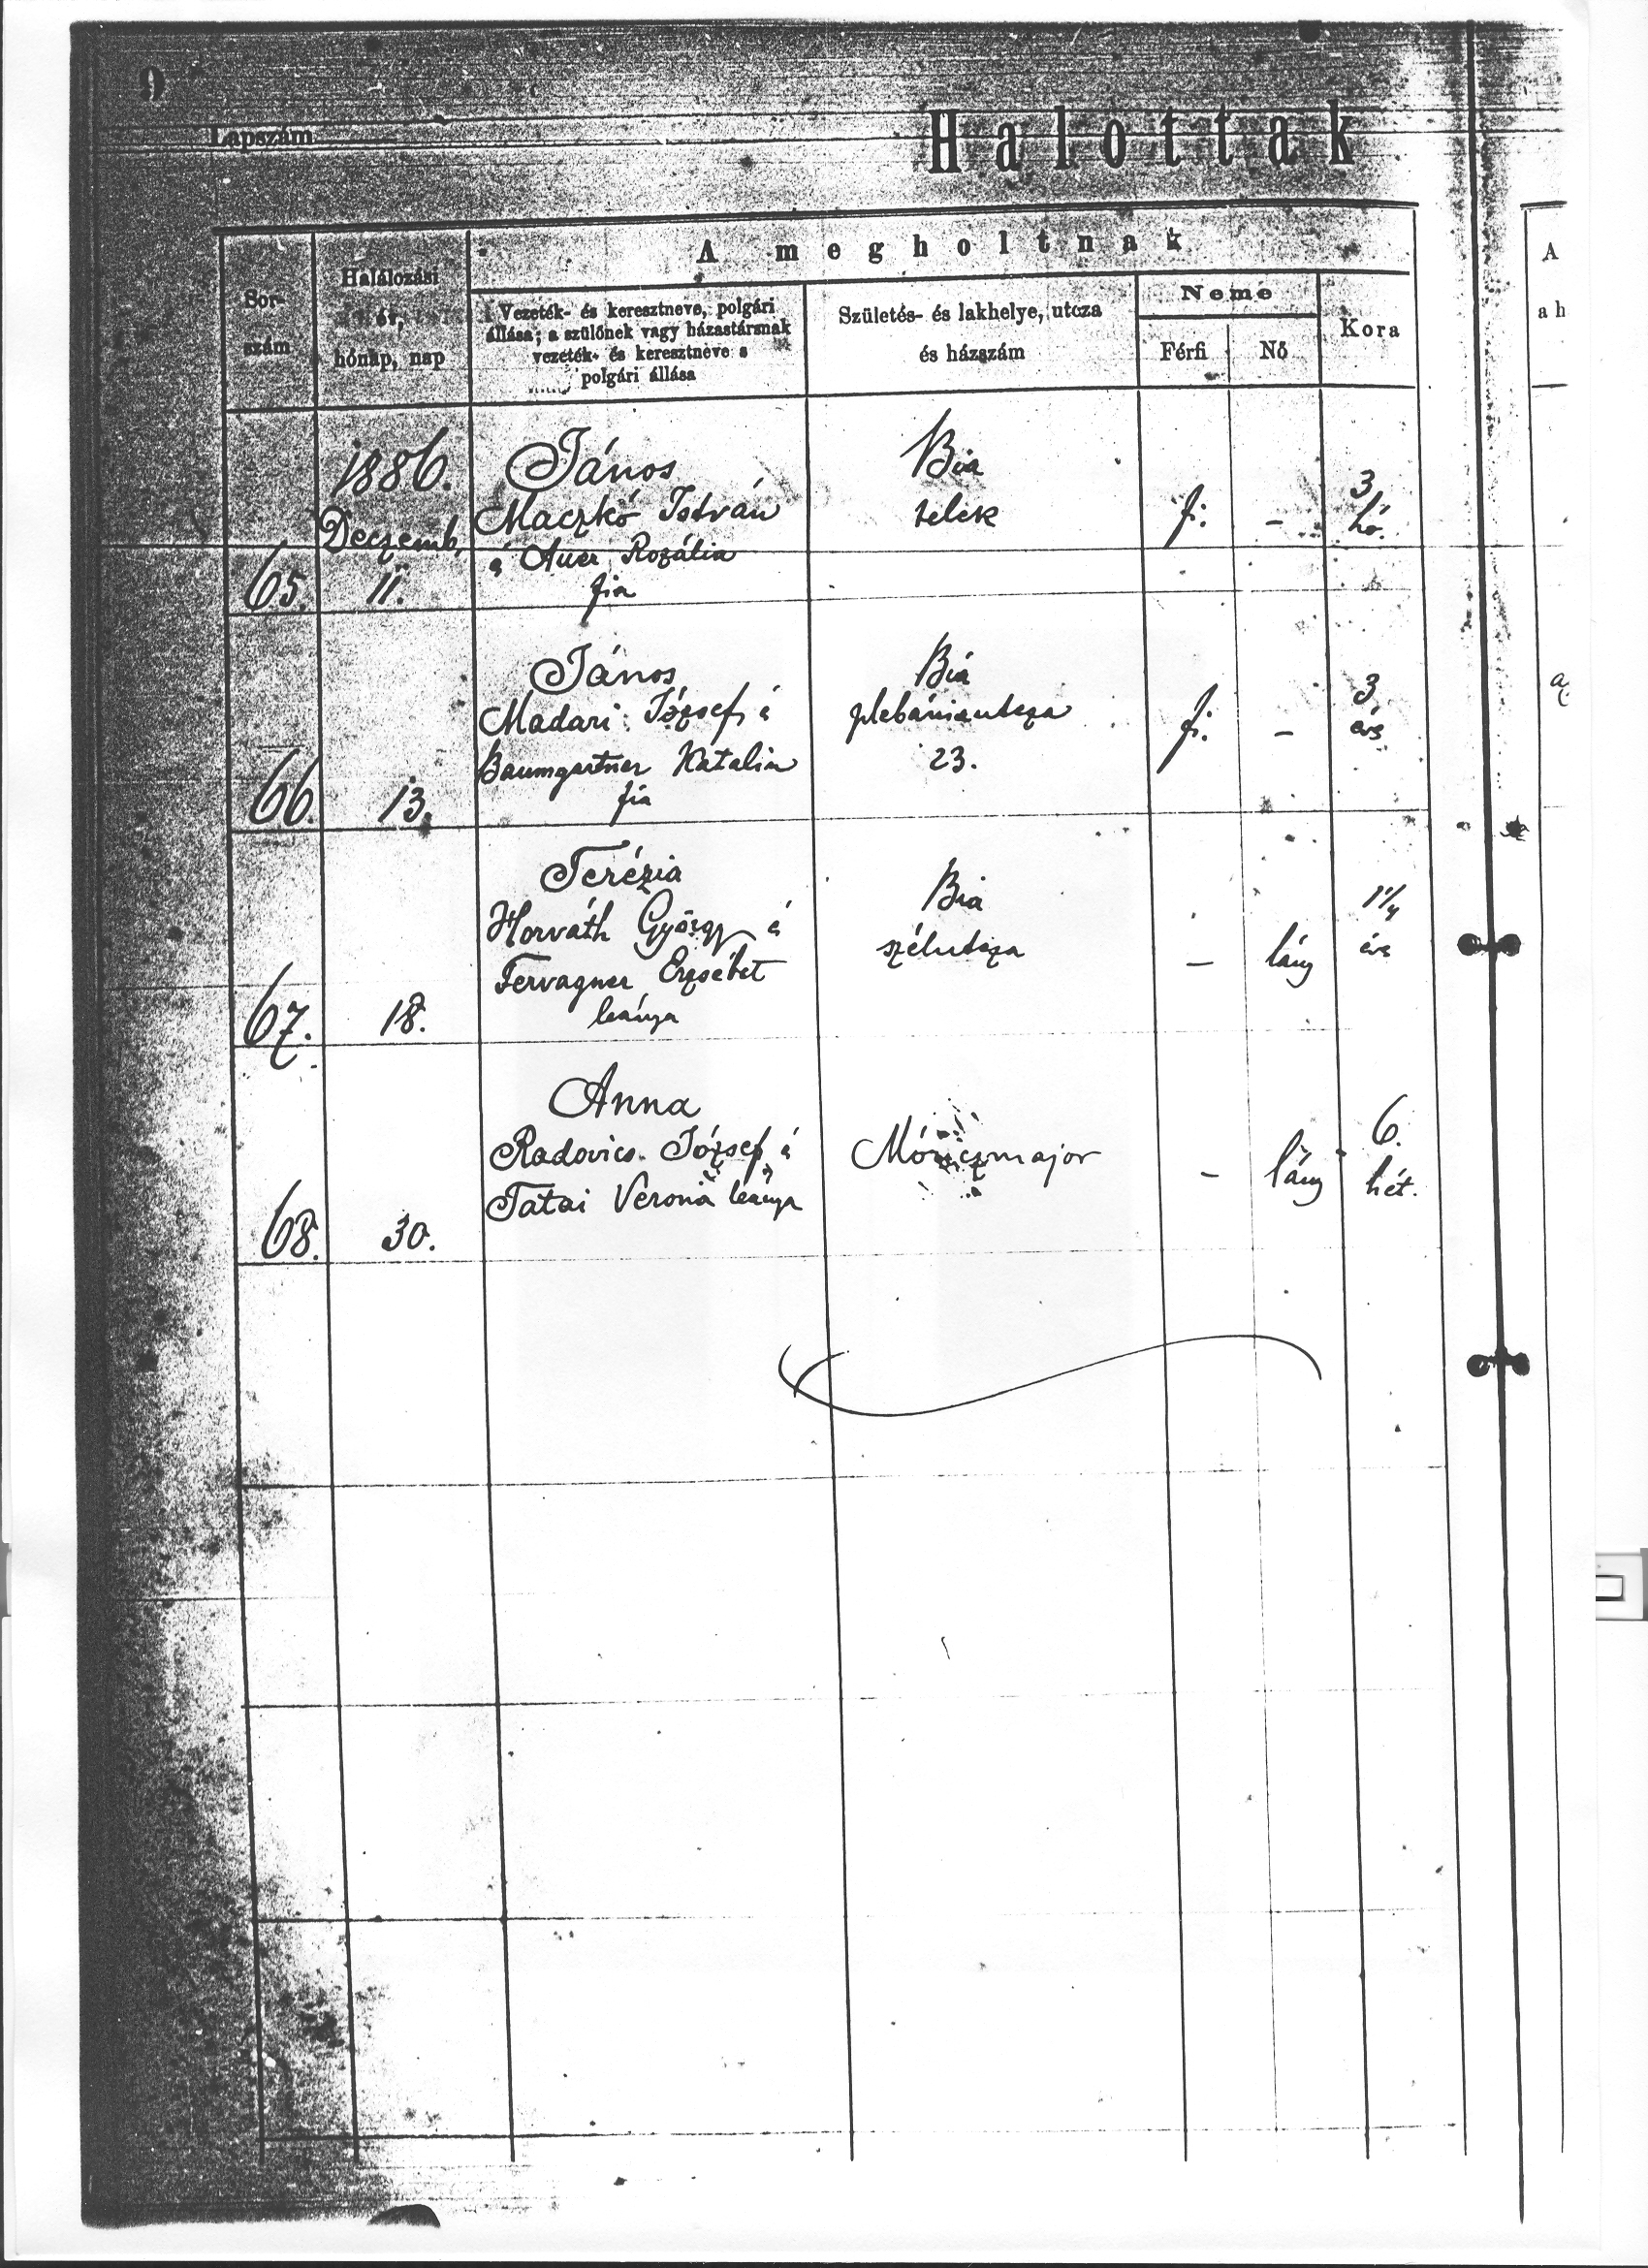 9
Lapszám
Halottak
A megholtnak
Sor-
szám
Halálozási
év,
hónap, nap
Vezeték- és keresztneve, polgári
állása; a szülőnek vagy házastársnak
vezeték- és keresztneve s
polgári állása
Születés- és lakhelye, utcza
és házszám
Neme
Férfi
Nő
Kora
A
a h
1886.
Deczemb.
65.
11.
János
Maczkó István
é Auer Rozália
fia
Bia
telek
fi.
-
3
hó.
66.
13.
János
Madari József é
Baumgartner Katalin
fia
Bia
plebániautcza
23.
fi.
-
3
évs
67.
18.
Terézia
Horváth György é
Fervagner Erzsébet
leánya
Bia
szélutcza
-
lány
1 1/4
évs
68.
30.
Anna
Radovics József é
Tatai Verona leánya
Móriczmajor
-
lány
6.
hét.